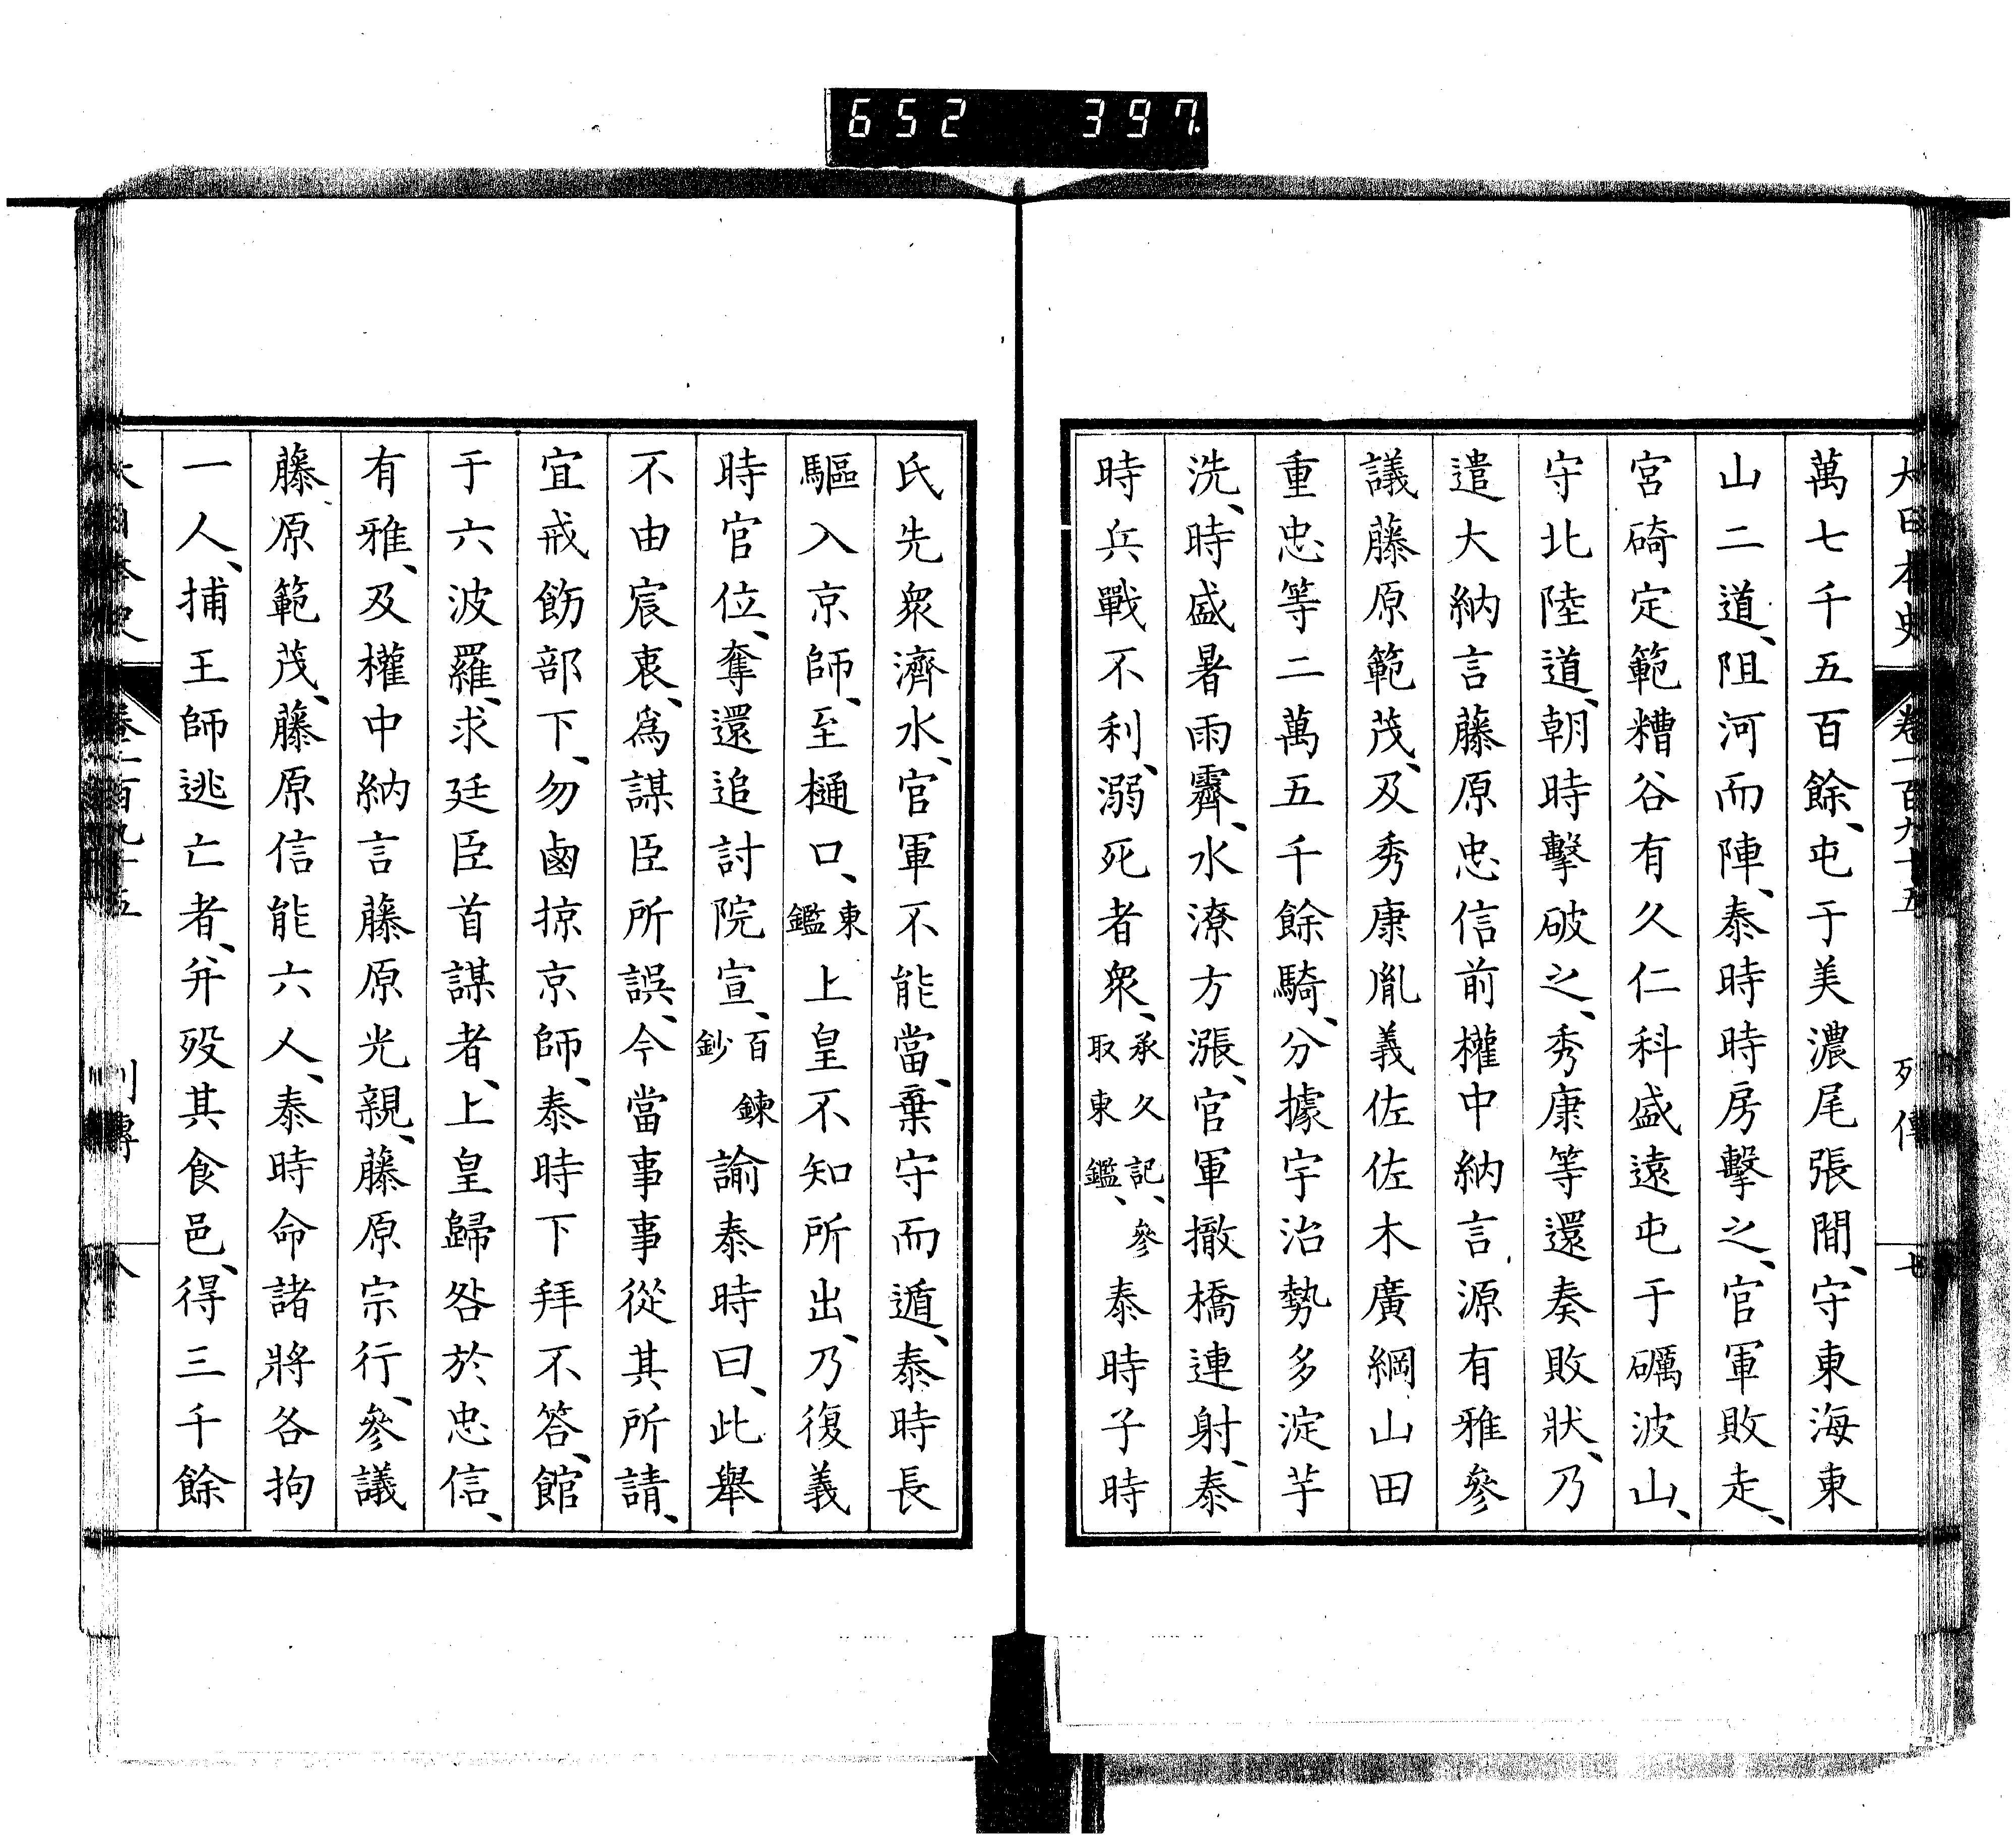 652 397
大日本史 卷一百九十五 列傳 七
萬七千五百餘、屯于美濃尾張間、守東海東
山二道、阻河而陣、泰時時房擊之、官軍敗走、
宮碕定範糟谷有久仁科盛遠屯于礪波山、
守北陸道、朝時擊破之、秀康等還奏敗狀、乃
遣大納言藤原忠信前權中納言源有雅參
議藤原範茂、及秀康胤義佐佐木廣綱山田
重忠等二萬五千餘騎、分據宇治勢多淀芋
洗、時盛暑雨霽、水潦方漲、官軍撤橋連射、泰
時兵戰不利、溺死者衆、承久記、參取東鑑、泰時子時
氏先衆濟水、官軍不能當、棄守而遁、泰時長
驅入京師、至樋口、東鑑上皇不知所出、乃復義
時官位、奪還追討院宣、百鍊鈔諭泰時曰、此舉
不由宸衷、爲謀臣所誤、今當事事從其所請、
宜戒飭部下、勿鹵掠京師、泰時下拜不答、館
于六波羅、求廷臣首謀者、上皇歸咎於忠信、
有雅、及權中納言藤原光親、藤原宗行、參議
藤原範茂、藤原信能六人、泰時命諸將各拘
一人、捕王師逃亡者、并歿其食邑、得三千餘
大日本史 卷一百九十五 列傳 八